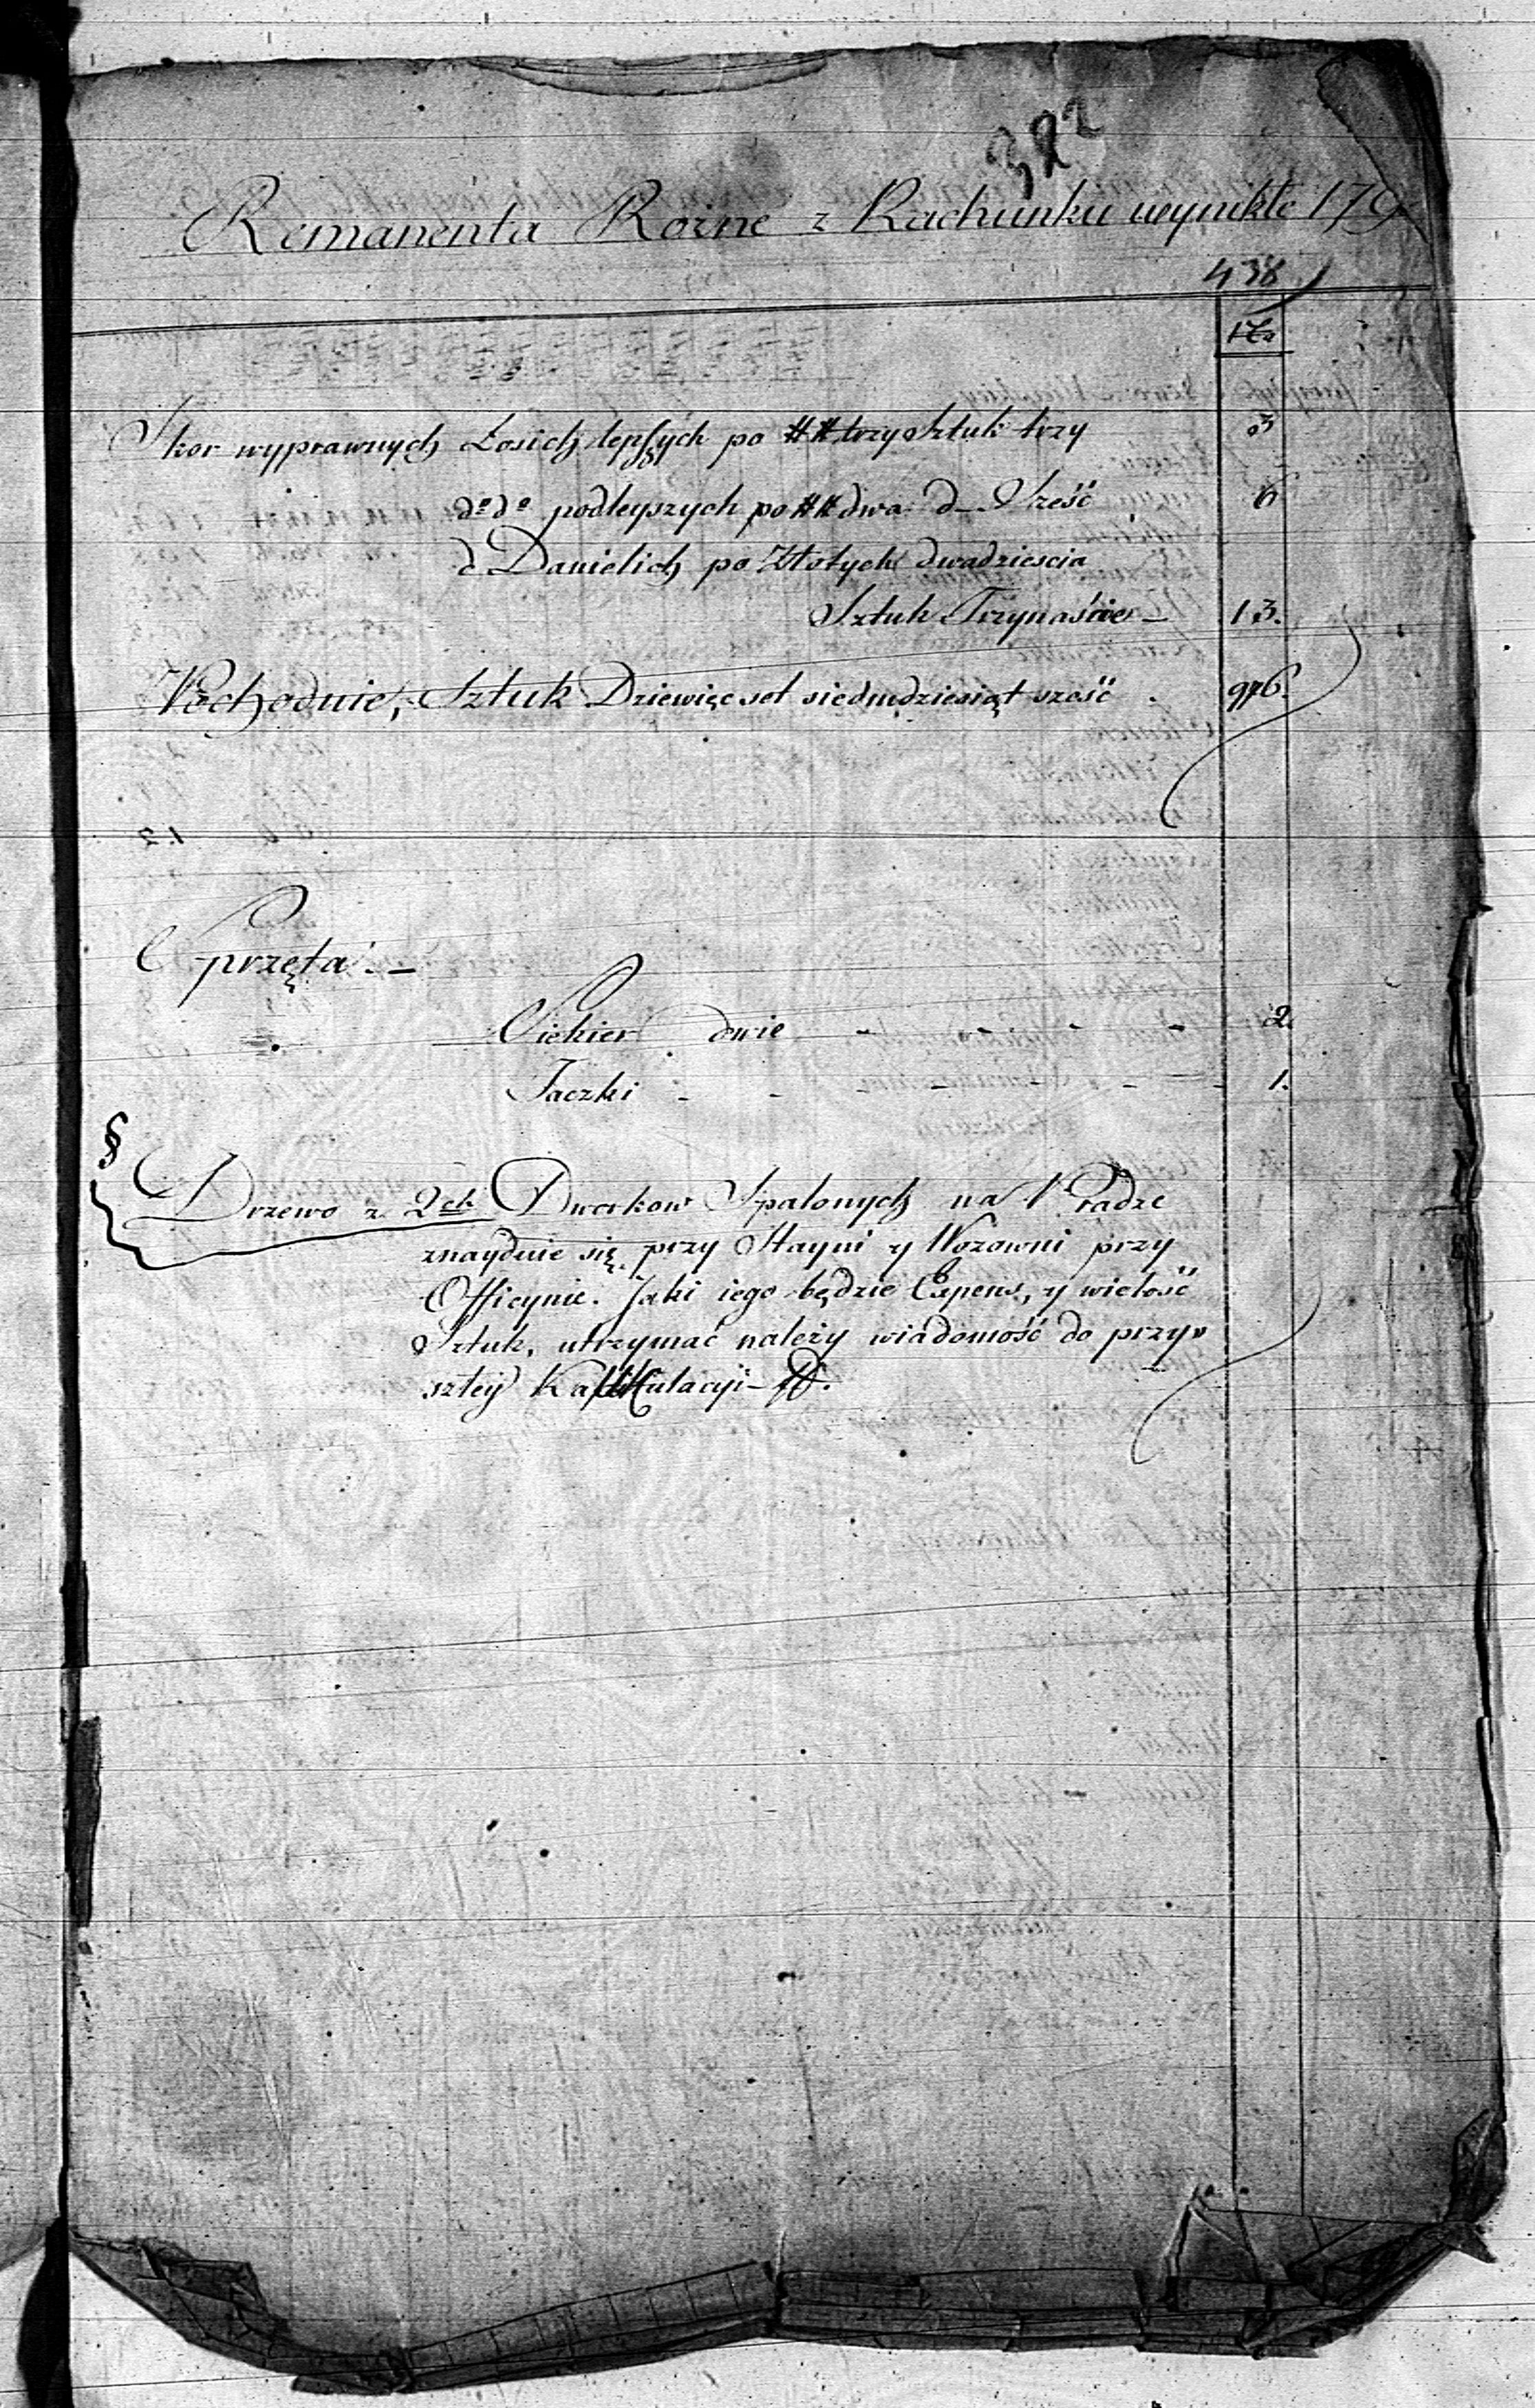 322
Remanenta Rożne z Rachunku wynikłe 179
438
Skor wyprawnych Łosich lepszych po ## trzy Sztuk trzy 3
do do podleyszych po ## dwa d– Sześć 6
d Danielich po Złotych dwadziescia
Sztuk Trzynaście – 13.
Pochodnie, Sztuk Dziewięcset siedmdziesiąt sześć . 976.
Sprzęta. –
Siekier dwie - - - - 2.
Taczki - - - - - - 1.
§
Drzewo z 2ch Dworkow Spalonych na Pradze
znayduie się przy Stayni y Wozowni przy
Officynie. Jaki iego będzie Expens, y wielość
Sztuk, utrzymać należy wiadomość do przy=
szłey Kalkulacyi –